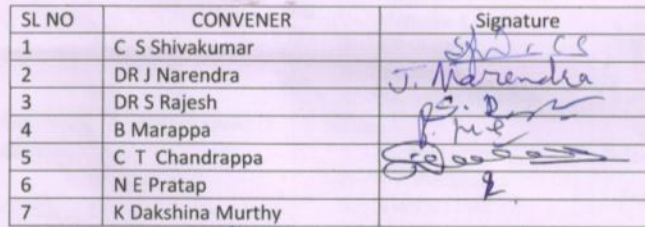 SL NO CONVENER Signature
1 C S Shivakumar
2 DR J Narendra J. Narendra
3 DR S Rajesh
4 B Marappa
5 C T Chandrappa
6 N E Pratap
7 K Dakshina Murthy